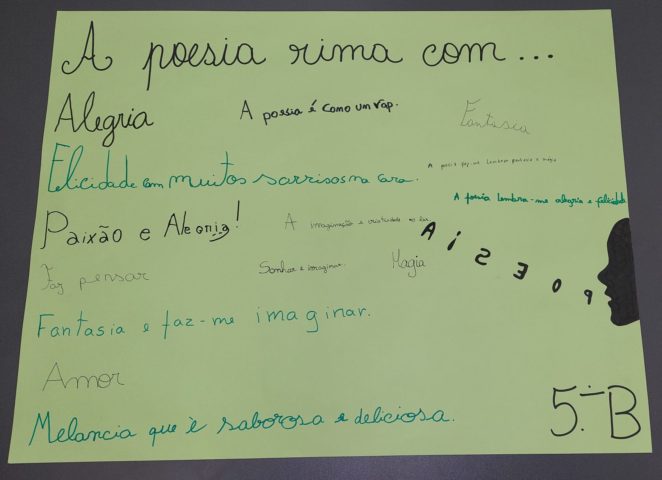 A poesia rima com...
Alegria
A poesia é como um rap.
Fantasia
Felicidade com muitos sorrisos na cara.
A poesia faz-me lembrar magia
A poesia lembra-me alegria e felicidade
Paixão e Alegria!
A imaginação e criatividade
Faz pensar
Sonhar e imaginar.
Magia
AiSEOP
Fantasia e faz-me imaginar.
Amor
Melancia que è saborosa e deliciosa.
5.º B